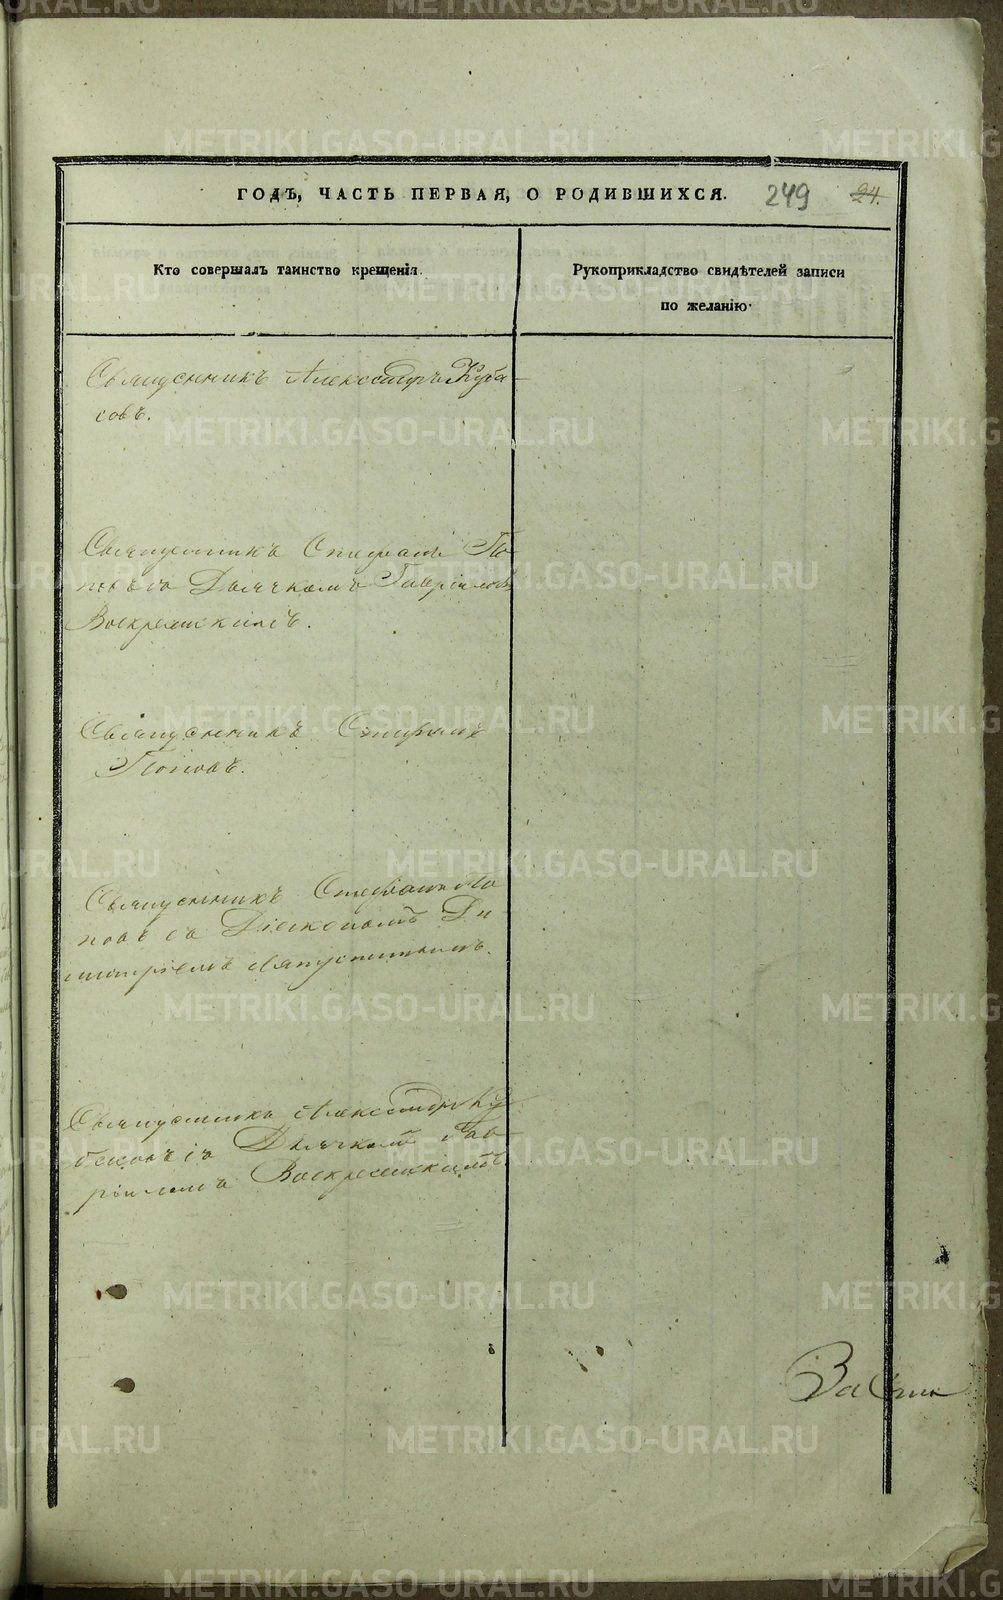 ГОДЪ, ЧАСТЬ ПЕРВАЯ, О РОДИВШИХСЯ. 249 24.
Кто совершалъ таинство крещенія.
Рукоприкладство свидѣтелей записи
по желанію.
Священникъ Александръ Куба
совъ.
Священникъ Стефанъ По
повъ съ Дьячкомъ Гавріиломъ
Воскресенскимъ.
Священникъ Стефанъ
Поповъ.
Священникъ Стефанъ По
повъ съ Діакономъ Ди
митріемъ Ляпустинымъ.
Священникъ Александръ Ку
басовъ съ Дьячкомъ Гав
ріиломъ Воскресенскимъ.
METRIKI.GASO-URAL.RU